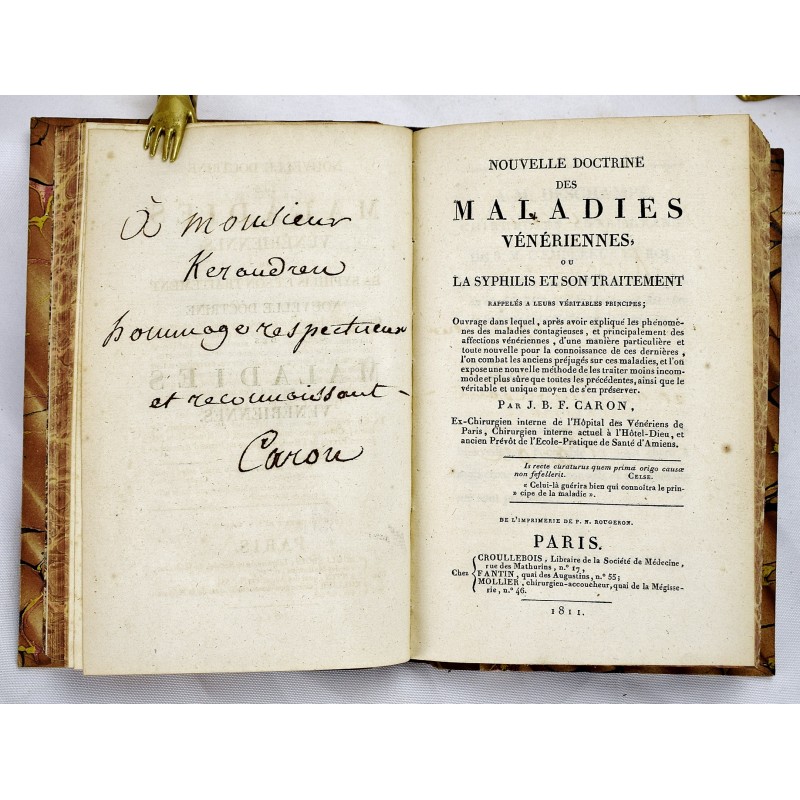 À Monsieur
Keraudren
hommage respectueux
et reconnaissant
Caron
NOUVELLE DOCTRINE
DES
MALADIES
VÉNÉRIENNES,
OU
LA SYPHILIS ET SON TRAITEMENT
RAPPELÉS A LEURS VÉRITABLES PRINCIPES;
Ouvrage dans lequel, après avoir expliqué les phénomè-
nes des maladies contagieuses, et principalement des
affections vénériennes, d'une manière particulière et
toute nouvelle pour la connoissance de ces dernières,
l'on combat les anciens préjugés sur ces maladies, et l'on
expose une nouvelle méthode de les traiter moins incom-
mode et plus sûre que toutes les précédentes, ainsi que le
véritable et unique moyen de s'en préserver.
PAR J. B. F. CARON,
Ex-Chirurgien interne de l'Hôpital des Vénériens de
Paris, Chirurgien interne actuel à l'Hôtel-Dieu, et
ancien Prévôt de l'Ecole-Pratique de Santé d'Amiens.
Is recte curaturus quem prima origo causæ
non fefellerit. CELSE.
« Celui-là guérira bien qui connoîtra le prin-
» cipe de la maladie ».
DE L'IMPRIMERIE DE P. N. ROUGERON.
PARIS.
Chez CROULLEBOIS, Libraire de la Société de Médecine,
rue des Mathurins, n.° 17,
FANTIN, quai des Augustins, n.° 55;
MOLLIER, chirurgien-accoucheur, quai de la Mégisse-
rie, n.° 46.
1811.